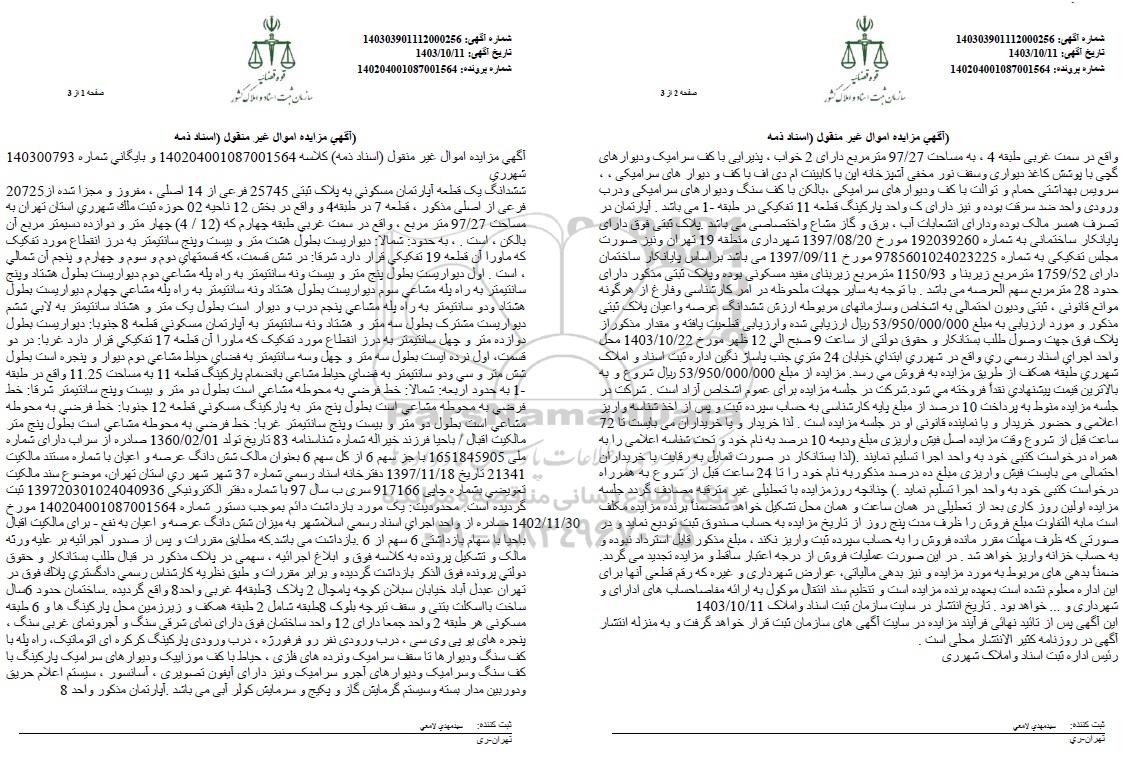 شماره آگهی: 140303901112000256
تاریخ آگهی: 1403/10/11
شماره پرونده: 140204001087001564
قوه قضائیه
سازمان ثبت اسناد و املاک کشور
صفحه 1 از 3
(آگهي مزایده اموال غیر منقول (اسناد ذمه
آگهي مزایده اموال غیر منقول (اسناد ذمه) کلاسه 140204001087001564 و بایگاني شماره 140300793
شهرری
ششدانگ یک قطعه آپارتمان مسکوني به پلاک ثبتی 25745 فرعی از 14 اصلی ، مفروز و مجزا شده از20725
فرعی از اصلی مذکور ، قطعه 7 در طبقه4 و واقع در بخش 12 ناحیه 02 حوزه ثبت ملك شهرري استان تهران به
مساحت 97/27 متر مربع ، واقع در سمت غربي طبقه چهارم که (12 / 4) چهار متر و دوازده دسیمتر مربع آن
بالکن ، است . ، به حدود: شمالا: دیواریست بطول هشت متر و بیست وپنج سانتیمتر به درز انقطاع مورد تفکیک
که ماورا آن قطعه 19 تفکیکي قرار دارد شرقا: در شش قسمت، که قسمتهاي دوم و سوم و چهارم و پنجم آن شمالي
، است . اول دیواریست بطول پنج متر و بیست ونه سانتیمتر به راه پله مشاعي دوم دیواریست بطول هشتاد وپنج
سانتیمتر به راه پله مشاعي سوم دیواریست بطول هشتاد ونه سانتیمتر به راه پله مشاعي چهارم دیواریست بطول
هشتاد ودو سانتیمتر به راه پله مشاعي پنجم درب و دیوار است بطول یک متر و هشتاد سانتیمتر به لابي ششم
دیواریست مشترک بطول سه متر و هشتاد ونه سانتیمتر به آپارتمان مسکوني قطعه 8 جنوبا: دیواریست بطول
دوازده متر و چهل سانتیمتر به درز انقطاع مورد تفکیک که ماورا آن قطعه 17 تفکیکي قرار دارد غربا: در دو
قسمت، اول نرده ایست بطول سه متر و چهل وسه سانتیمتر به فضاي حیاط مشاعي دوم دیوار و پنجره است بطول
شش متر و سي ودو سانتیمتر به فضاي حیاط مشاعي بانضمام پارکینگ قطعه 11 به مساحت 11.25 واقع در طبقه
-1 به حدود اربعه: شمالا: خط فرضي به محوطه مشاعي است بطول دو متر و بیست وپنج سانتیمتر شرقا: خط
فرضي به محوطه مشاعي است بطول پنج متر به پارکینگ مسکوني قطعه 12 جنوبا: خط فرضي به محوطه
مشاعي است بطول دو متر و بیست وپنج سانتیمتر غربا: خط فرضي به محوطه مشاعي است بطول پنج متر
مالکیت اقبال / باحیا فرزند خیراله شماره شناسنامه 83 تاریخ تولد 1360/02/01 صادره از سراب دارای شماره
ملی 1651845905 با جز سهم 6 از کل سهم 6 بعنوان مالک شش دانگ عرصه و اعیان با شماره مستند مالکیت
21341 تاریخ 1397/11/18 دفترخانه اسناد رسمي شماره 37 شهر شهر ري استان تهران، موضوع سند مالکیت
تعویضي بشماره چاپی 917166 سری ب سال 97 با شماره دفتر الکترونیکی 139720301024040936 ثبت
گردیده است. محدودیت: یک مورد بازداشت دائم بموجب دستور شماره 140204001087001564 مورخ
1402/11/30 صادره از واحد اجراي اسناد رسمي اسلامشهر به میزان شش دانگ عرصه و اعیان به نفع - برای مالکیت اقبال
باحیا با سهام بازداشتی 6 سهم از 6 .بازداشت مي باشد.که مطابق مقررات و پس از صدور اجرائیه بر علیه ورثه
مالک و تشکیل پرونده به کلاسه فوق و ابلاغ اجرائیه ، سهمی در پلاک مذکور در قبال طلب بستانکار و حقوق
دولتي پرونده فوق الذکر بازداشت گردیده و برابر مقررات و طبق نظریه کارشناس رسمي دادگستري پلاك فوق در
تهران عبدل آباد خیابان سبلان کوچه پامچال 2 پلاک 3طبقه4 غربی واحد8 واقع گردیده .ساختمان حدود 6سال
ساخت بااسکلت بتنی و سقف تیرچه بلوک 8طبقه شامل 2 طبقه همکف و زیرزمین محل پارکینگ ها و 6 طبقه
مسکونی هر طبقه 2 واحد جمعا دارای 12 واحد ساختمان فوق دارای نمای شرقی سنگ و آجرونمای غربی سنگ ،
پنجره های یو پی وی سی ، درب ورودی نفر رو فرفورژه ، درب ورودی پارکینگ کرکره ای اتوماتیک، راه پله با
کف سنگ ودیوارها تا سقف سرامیک ونرده های فلزی ، حیاط با کف موزاییک ودیوارهای سرامیک پارکینگ با
کف سنگ وسرامیک ودیوارهای آجرو سرامیک ونیز دارای آیفون تصویری ، آسانسور ، سیستم اعلام حریق
ودوربین مدار بسته وسیستم گرمایش گاز و پکیج و سرمایش کولر آبی می باشد .آپارتمان مذکور واحد 8
ثبت کننده: سیدمهدي لامعي
تهران-ري
شماره آگهی: 140303901112000256
تاریخ آگهی: 1403/10/11
شماره پرونده: 140204001087001564
قوه قضائیه
سازمان ثبت اسناد و املاک کشور
صفحه 2 از 3
(آگهي مزایده اموال غیر منقول (اسناد ذمه
واقع در سمت غربی طبقه 4 ، به مساحت 97/27 مترمربع دارای 2 خواب ، پذیرایی با کف سرامیک ودیوارهای
گچی با پوشش کاغذ دیواری وسقف نور مخفی آشپزخانه اپن با کابینت ام دی اف با کف و دیوار های سرامیکی ، ،
سرویس بهداشتی حمام و توالت با کف ودیوارهای سرامیکی ،بالکن با کف سنگ ودیوارهای سرامیکی ودرب
ورودی واحد ضد سرقت بوده و نیز دارای ک واحد پارکینگ قطعه 11 تفکیکی در طبقه -1 می باشد . آپارتمان در
تصرف همسر مالک بوده ودارای انشعابات آب ، برق و گاز مشاع واختصاصی می باشد .پلاک ثبتی فوق دارای
پایانکار ساختمانی به شماره 192039260 مورخ 1397/08/20 شهرداری منطقه 19 تهران ونیز صورت
مجلس تفکیکی به شماره 9785601024023225 مورخ 1397/09/11 می باشد بر اساس پایانکار ساختمان
دارای 1759/52 مترمربع زیربنا و 1150/93 مترمربع زیربنای مفید مسکونی بوده وپلاک ثبتی مذکور دارای
حدود 28 مترمربع سهم العرصه می باشد . با توجه به سایر جهات ملحوظه در امر کارشناسی وفارغ از هرگونه
موانع قانونی ، ثبتی ودیون احتمالی به اشخاص وسازمانهای مربوطه ارزش ششدانگ عرصه واعیان پلاک ثبتی
مذکور و مورد ارزیابی به مبلغ 53/950/000/000 ریال ارزیابی شده وارزیابی قطعیت یافته و مقدار مذکوراز
پلاک فوق جهت وصول طلب بستانکار و حقوق دولتی از ساعت 9 صبح الی 12 ظهر مورخ 1403/10/22 محل
واحد اجراي اسناد رسمي ري واقع در شهرري ابتداي خیابان 24 متري جنب پاساژ نگین اداره ثبت اسناد و املاک
شهرري طبقه همکف از طریق مزایده به فروش مي رسد. مزایده از مبلغ 53/950/000/000 ریال شروع و به
بالاترین قیمت پیشنهادي نقداً فروخته مي شود.شرکت در جلسه مزایده برای عموم اشخاص آزاد است . شرکت در
جلسه مزایده منوط به پرداخت 10 درصد از مبلغ پایه کارشناسی به حساب سپرده ثبت و پس از اخذ شناسه واریز
اعلامی و حضور خریدار و یا نماینده قانونی او در جلسه مزایده است . لذا خریدار و یا خریداران می بایست تا 72
ساعت قبل از شروع وقت مزایده اصل فیش واریزی مبلغ ودیعه 10 درصد به نام خود و تحت شناسه اعلامی را به
همراه درخواست کتبی خود به واحد اجرا تسلیم نمایند .(لذا بستانکار در صورت تمایل به رقابت با خریداران
احتمالی می بایست فیش واریزی مبلغ ده درصد مذکوربه نام خود را تا 24 ساعت قبل از شروع به همراه
درخواست کتبی خود به واحد اجرا تسلیم نماید .) چنانچه روزمزایده با تعطیلی غیر مترقبه مصادف گردد جلسه
مزایده اولین روز کاری بعد از تعطیلی در همان ساعت و همان محل تشکیل خواهد شدضمناً برنده مزایده مکلف
است مابه التفاوت مبلغ فروش را ظرف مدت پنج روز از تاریخ مزایده به حساب صندوق ثبت تودیع نماید و در
صورتی که ظرف مهلت مقرر مانده فروش را به حساب سپرده ثبت واریز نکند ، مبلغ مذکور قابل استرداد نبوده و
به حساب خزانه واریز خواهد شد . در این صورت عملیات فروش از درجه اعتبار ساقط و مزایده تجدید می گردد.
ضمناً بدهی های مربوط به مورد مزایده و نیز بدهی مالیاتی، عوارض شهرداری و غیره که رقم قطعی آنها برای
این اداره معلوم نشده است بعهده برنده مزایده است و تنظیم سند انتقال موکول به ارائه مفاصاحساب های ادارای و
شهرداری و ... خواهد بود . تاریخ انتشار در سایت سازمان ثبت اسناد واملاک 1403/10/11
این آگهی پس از تائید نهائی فرآیند مزایده در سایت آگهی های سازمان ثبت قرار خواهد گرفت و به منزله انتشار
آگهی در روزنامه کثیر الانتشار محلی است .
رئیس اداره ثبت اسناد واملاک شهرری
ثبت کننده: سیدمهدي لامعي
تهران-ري